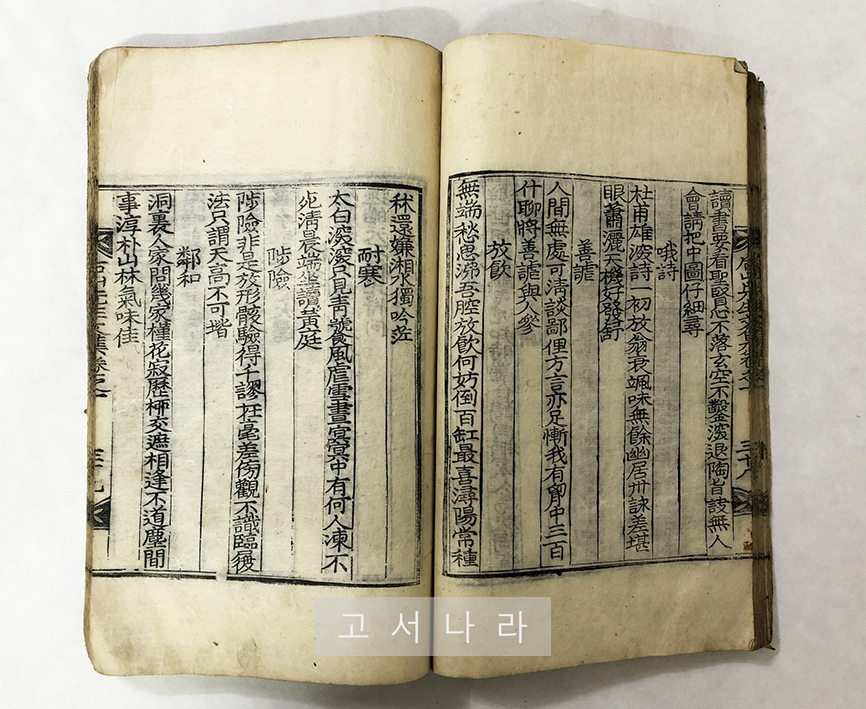 讀書要看聖賢心不落玄空不鑿深退陶旨訣無人
會請把中圖仔細尋
哦詩
杜甫雄深詩一初放翁衰颯味無餘幽居卅詠差堪
眼蕭灑天機好發舒
善謔
人間無處可淸談鄙俚方言亦足慚我有中三百
什聊將善謔與人參
放飮
無端愁思滿吾腔放飮何妨倒百缸最喜潯陽常種
秫還嫌湘水獨吟
耐寒
太白深深只見靑號風虐雪晝冥冥中有何人凍不
死淸晨端坐讀黃庭
陟險
陟險非是放形骸驗得千謬在毫差傍觀不識臨履
法只謂天高不可堦
鄰和
洞裏人家問幾家槿花寂歷柳交遮相逢不道塵間
事淳朴山林氣味佳
고서나라